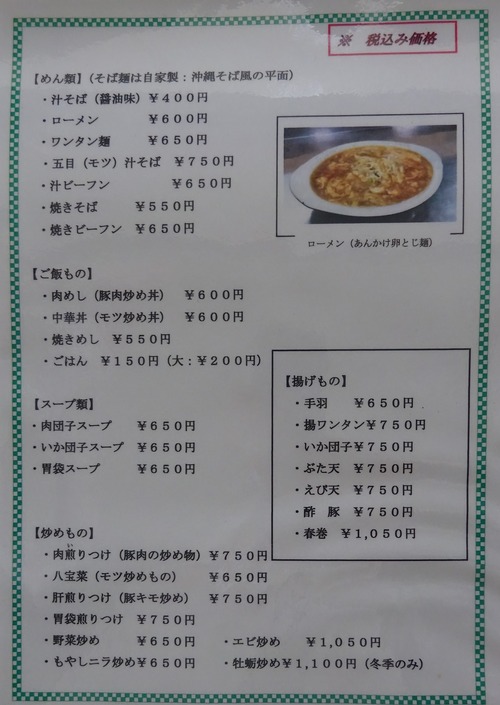 ※ 税込み価格
【めん類】（そば麺は自家製：沖縄そば風の平面）
・汁そば（醤油味）￥４００円
・ローメン ￥６００円
・ワンタン麺 ￥６５０円
・五目（モツ）汁そば ￥７５０円
・汁ビーフン ￥６５０円
・焼きそば ￥５５０円
・焼きビーフン ￥６５０円
ローメン（あんかけ卵とじ麺）
【ご飯もの】
・肉めし（豚肉炒め丼） ￥６００円
・中華丼（モツ炒め丼） ￥６００円
・焼きめし ￥５５０円
・ごはん ￥１５０円（大：￥２００円）
【スープ類】
・肉団子スープ ￥６５０円
・いか団子スープ ￥６５０円
・胃袋スープ ￥６５０円
【揚げもの】
・手羽 ￥６５０円
・揚ワンタン￥７５０円
・いか団子￥７５０円
・ぶた天 ￥７５０円
・えび天 ￥７５０円
・酢 豚 ￥７５０円
・春巻 ￥１,０５０円
【炒めもの】
い
・肉煎りつけ（豚肉の炒め物）￥７５０円
・八宝菜（モツ炒めもの） ￥６５０円
・肝煎りつけ（豚キモ炒め） ￥７５０円
・胃袋煎りつけ ￥７５０円
・野菜炒め ￥６５０円
・もやしニラ炒め￥６５０円
・エビ炒め ￥１,０５０円
・牡蛎炒め￥１,１００円（冬季のみ）